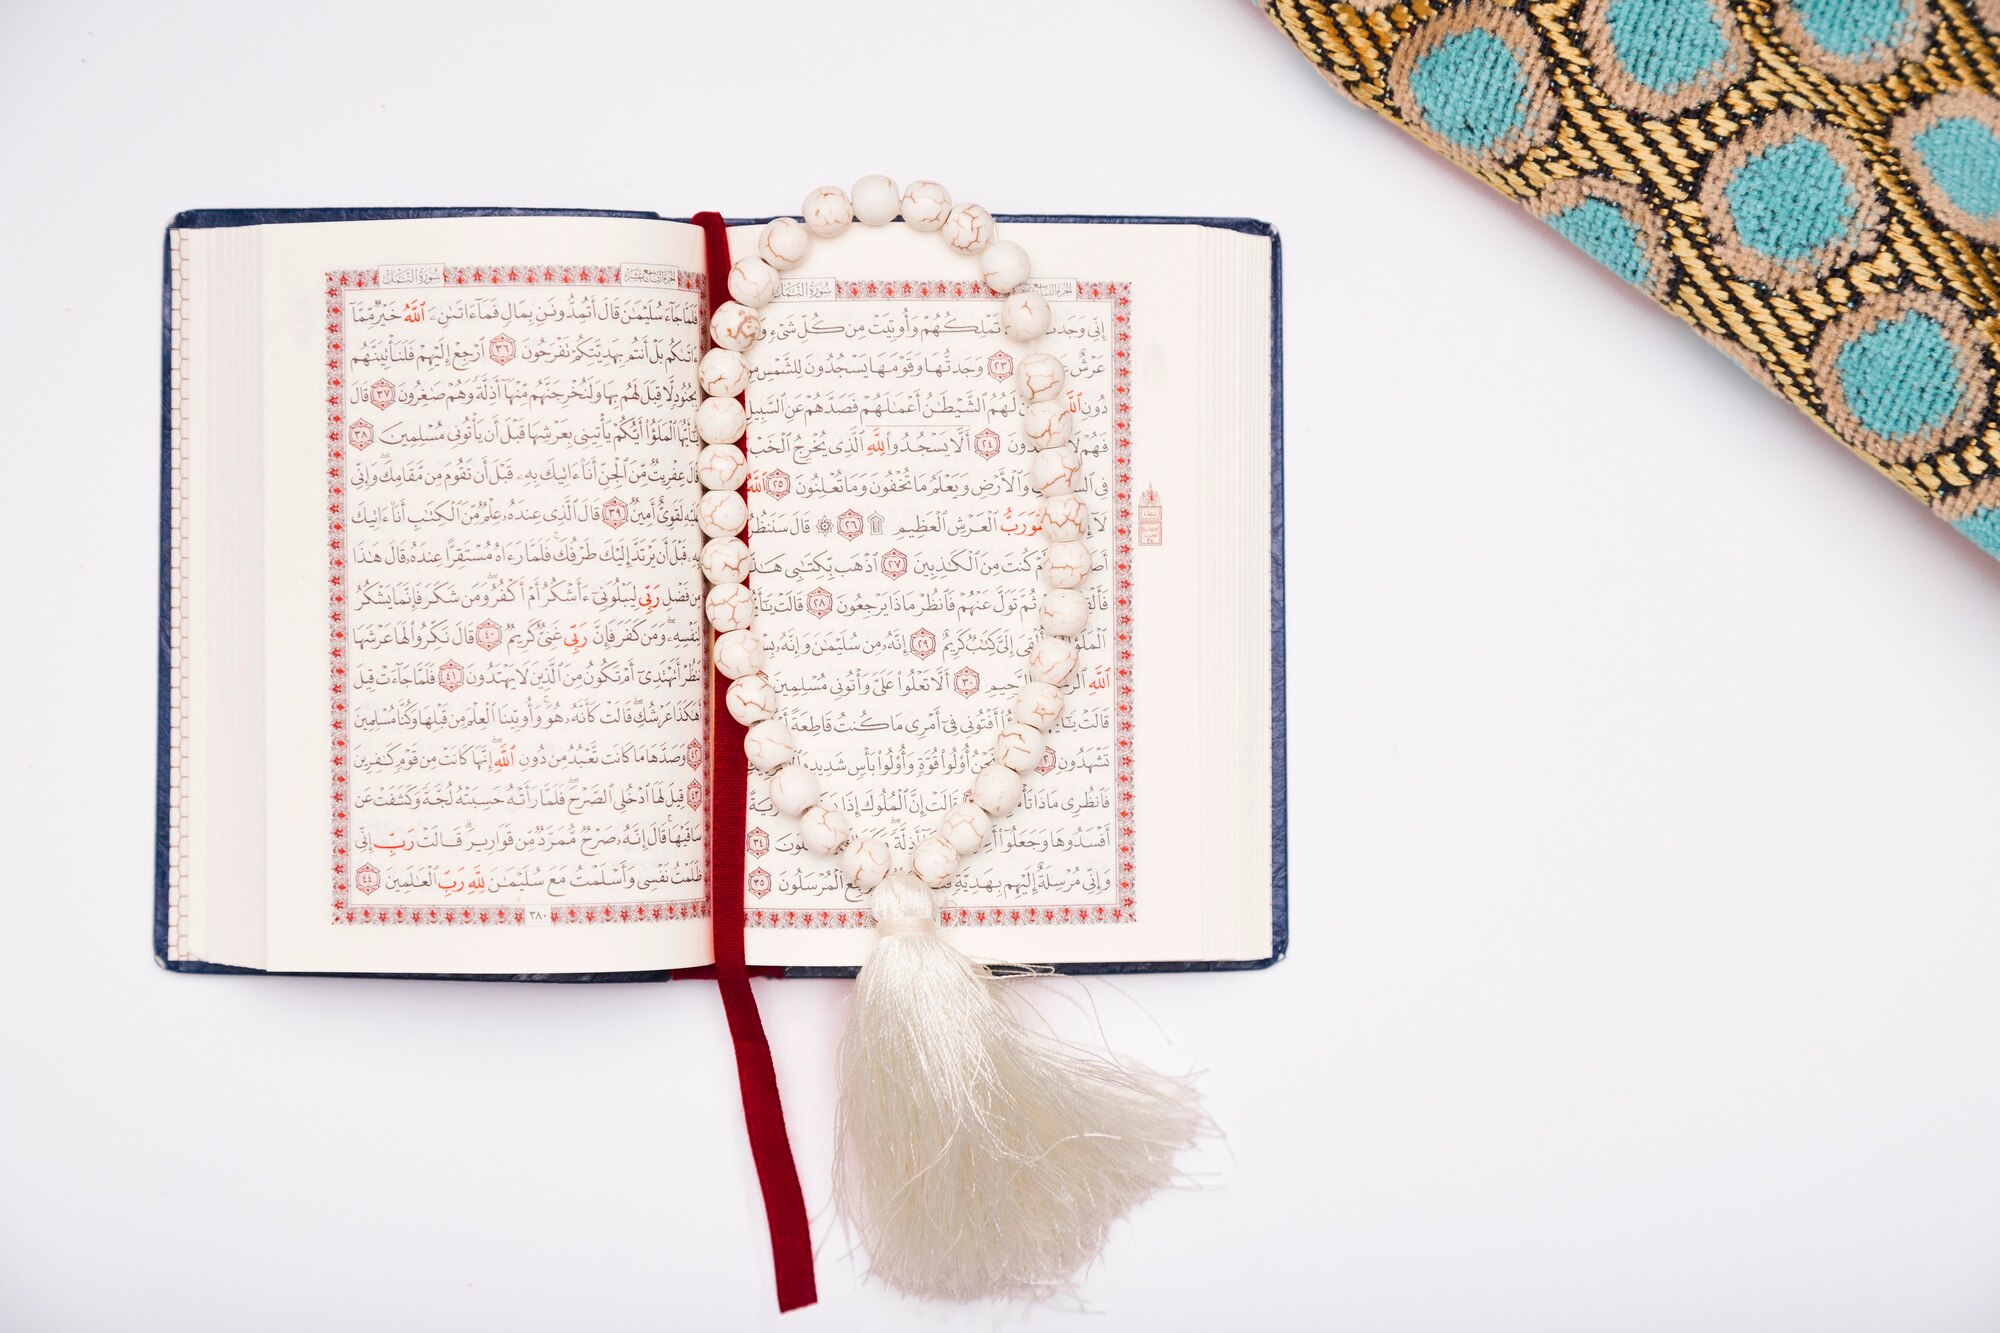 الجزء التاسع عشر سُورَةُ النَّمْلِ
إِنِّي تَمْلِكُهُمْ وَأُوتِيَتْ مِن كُلِّ شَىْءٍ
عَرْشٌ ٢٣ وَجَدتُّهَا وَقَوْمَهَا يَسْجُدُونَ لِلشَّمْسِ مِن
دُونِ ٱللَّهِ لَهُمُ ٱلشَّيْطَٰنُ أَعْمَٰلَهُمْ فَصَدَّهُمْ عَنِ ٱلسَّبِيلِ
فَهُمْ ٢٤ أَلَّا يَسْجُدُوا۟ لِلَّهِ ٱلَّذِى يُخْرِجُ ٱلْخَبْءَ
فِى وَٱلْأَرْضِ وَيَعْلَمُ مَا تُخْفُونَ وَمَا تُعْلِنُونَ ٢٥ ٱللَّهُ
رَبُّ ٱلْعَرْشِ ٱلْعَظِيمِ ۩ ٢٦ ۞ قَالَ سَنَنظُرُ
كُنتَ مِنَ ٱلْكَٰذِبِينَ ٢٧ ٱذْهَب بِّكِتَٰبِى هَٰذَا
ثُمَّ تَوَلَّ عَنْهُمْ فَٱنظُرْ مَاذَا يَرْجِعُونَ ٢٨ قَالَتْ يَٰٓأَيُّهَا
إِلَىَّ كِتَٰبٌ كَرِيمٌ ٢٩ إِنَّهُۥ مِن سُلَيْمَٰنَ وَإِنَّهُۥ
ٱللَّهِ ٱلرَّحِيمِ ٣٠ أَلَّا تَعْلُوا۟ عَلَىَّ وَأْتُونِى مُسْلِمِينَ
قَالَتْ أَفْتُونِى فِىٓ أَمْرِى مَا كُنتُ قَاطِعَةً
تَشْهَدُونِ نَحْنُ أُو۟لُوا۟ قُوَّةٍ وَأُو۟لُوا۟ بَأْسٍ شَدِيدٍ
فَٱنظُرِى مَاذَا قَالَتْ إِنَّ ٱلْمُلُوكَ إِذَا
أَفْسَدُوهَا وَجَعَلُوٓا۟ أَذِلَّةً ٣٤
وَإِنِّى مُرْسِلَةٌ إِلَيْهِم بِهَدِيَّةٍ ٱلْمُرْسَلُونَ ٣٥
الجزء التاسع عشر سُورَةُ النَّمْلِ
فَلَمَّا جَآءَ سُلَيْمَٰنَ قَالَ أَتُمِدُّونَنِ بِمَالٍ فَمَآ ءَاتَىٰنِۦَ ٱللَّهُ خَيْرٌ مِّمَّآ
ءَاتَىٰكُم بَلْ أَنتُم بِهَدِيَّتِكُمْ تَفْرَحُونَ ٣٦ ٱرْجِعْ إِلَيْهِمْ فَلَنَأْتِيَنَّهُم
بِجُنُودٍ لَّا قِبَلَ لَهُم بِهَا وَلَنُخْرِجَنَّهُم مِّنْهَآ أَذِلَّةً وَهُمْ صَٰغِرُونَ ٣٧ قَالَ
يَٰٓأَيُّهَا ٱلْمَلَؤُا۟ أَيُّكُمْ يَأْتِينِى بِعَرْشِهَا قَبْلَ أَن يَأْتُونِى مُسْلِمِينَ ٣٨
قَالَ عِفْرِيتٌ مِّنَ ٱلْجِنِّ أَنَا۠ ءَاتِيكَ بِهِۦ قَبْلَ أَن تَقُومَ مِن مَّقَامِكَ ۖ وَإِنِّى
عَلَيْهِ لَقَوِىٌّ أَمِينٌ ٣٩ قَالَ ٱلَّذِى عِندَهُۥ عِلْمٌ مِّنَ ٱلْكِتَٰبِ أَنَا۠ ءَاتِيكَ
بِهِۦ قَبْلَ أَن يَرْتَدَّ إِلَيْكَ طَرْفُكَ ۚ فَلَمَّا رَءَاهُ مُسْتَقِرًّا عِندَهُۥ قَالَ هَٰذَا
مِن فَضْلِ رَبِّى لِيَبْلُوَنِىٓ ءَأَشْكُرُ أَمْ أَكْفُرُ ۖ وَمَن شَكَرَ فَإِنَّمَا يَشْكُرُ
لِنَفْسِهِۦ ۖ وَمَن كَفَرَ فَإِنَّ رَبِّى غَنِىٌّ كَرِيمٌ ٤٠ قَالَ نَكِّرُوا۟ لَهَا عَرْشَهَا
نَنظُرْ أَتَهْتَدِىٓ أَمْ تَكُونُ مِنَ ٱلَّذِينَ لَا يَهْتَدُونَ ٤١ فَلَمَّا جَآءَتْ قِيلَ
أَهَٰكَذَا عَرْشُكِ ۖ قَالَتْ كَأَنَّهُۥ هُوَ ۚ وَأُوتِينَا ٱلْعِلْمَ مِن قَبْلِهَا وَكُنَّا مُسْلِمِينَ
٤٢ وَصَدَّهَا مَا كَانَت تَّعْبُدُ مِن دُونِ ٱللَّهِ ۖ إِنَّهَا كَانَتْ مِن قَوْمٍ كَٰفِرِينَ
٤٣ قِيلَ لَهَا ٱدْخُلِى ٱلصَّرْحَ ۖ فَلَمَّا رَأَتْهُ حَسِبَتْهُ لُجَّةً وَكَشَفَتْ عَن
سَاقَيْهَا ۚ قَالَ إِنَّهُۥ صَرْحٌ مُّمَرَّدٌ مِّن قَوَارِيرَ ۗ قَالَتْ رَبِّ إِنِّى
ظَلَمْتُ نَفْسِى وَأَسْلَمْتُ مَعَ سُلَيْمَٰنَ لِلَّهِ رَبِّ ٱلْعَٰلَمِينَ ٤٤
٣٨٠